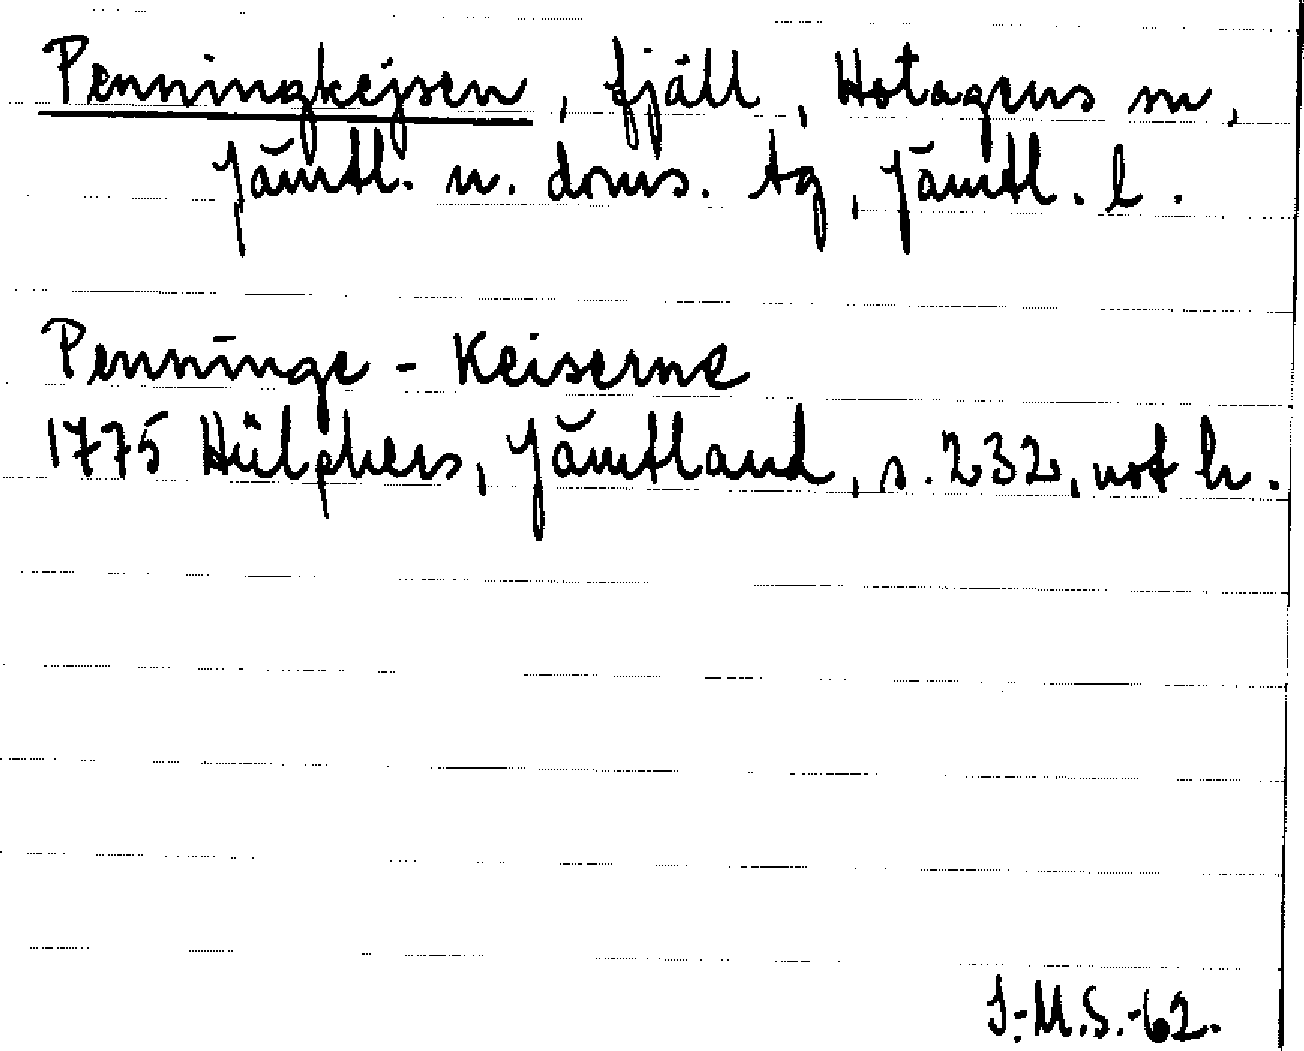 Penningkejsen, fjäll, Hotagens sn,
Jämtl. n. doms. tg, Jämtl. l.
Penninge - Keiserne
1775 Hülphers, Jämtland, s. 232, not h.
I.-M.S.-62.